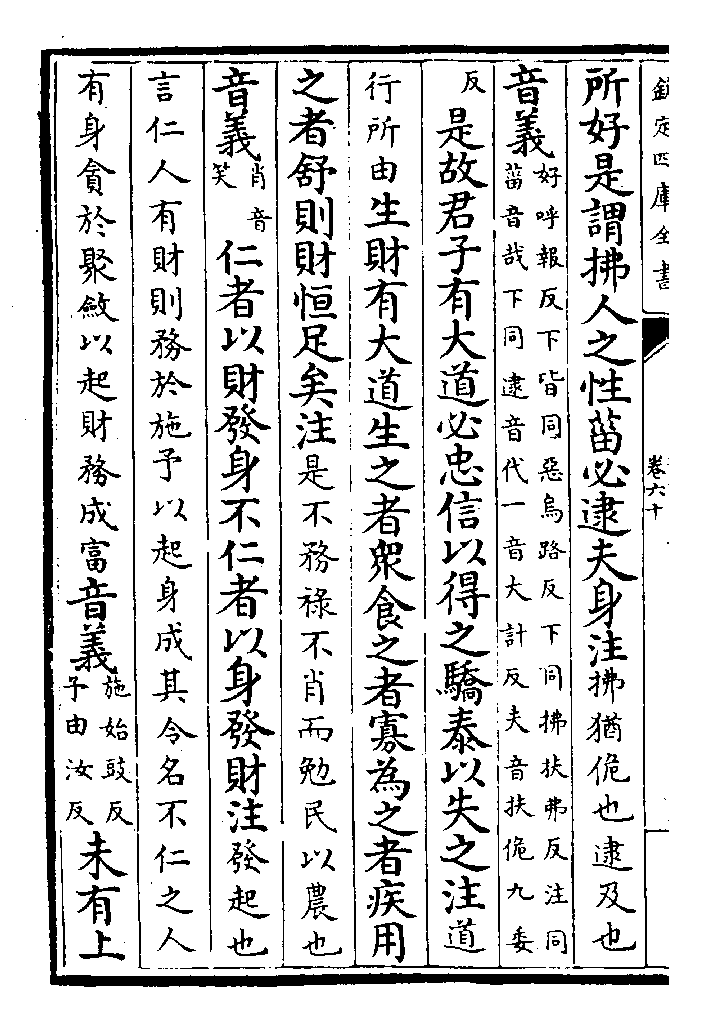 欽定四庫全書
卷六十
所好是謂拂人之性菑必逮夫身注拂猶佹也逮及也
音義好呼報反下皆同惡烏路反下同拂扶弗反注同菑音哉下同逮音代一音大計反夫音扶佹九委
反是故君子有大道必忠信以得之驕泰以失之注道
行所由生財有大道生之者衆食之者寡為之者疾用
之者舒則財恒足矣注是不務祿不肖而勉民以農也
音義肖音笑仁者以財發身不仁者以身發財注發起也
言仁人有財則務於施予以起身成其令名不仁之人
有身貪於聚斂以起財務成富音義施始豉反予由汝反未有上